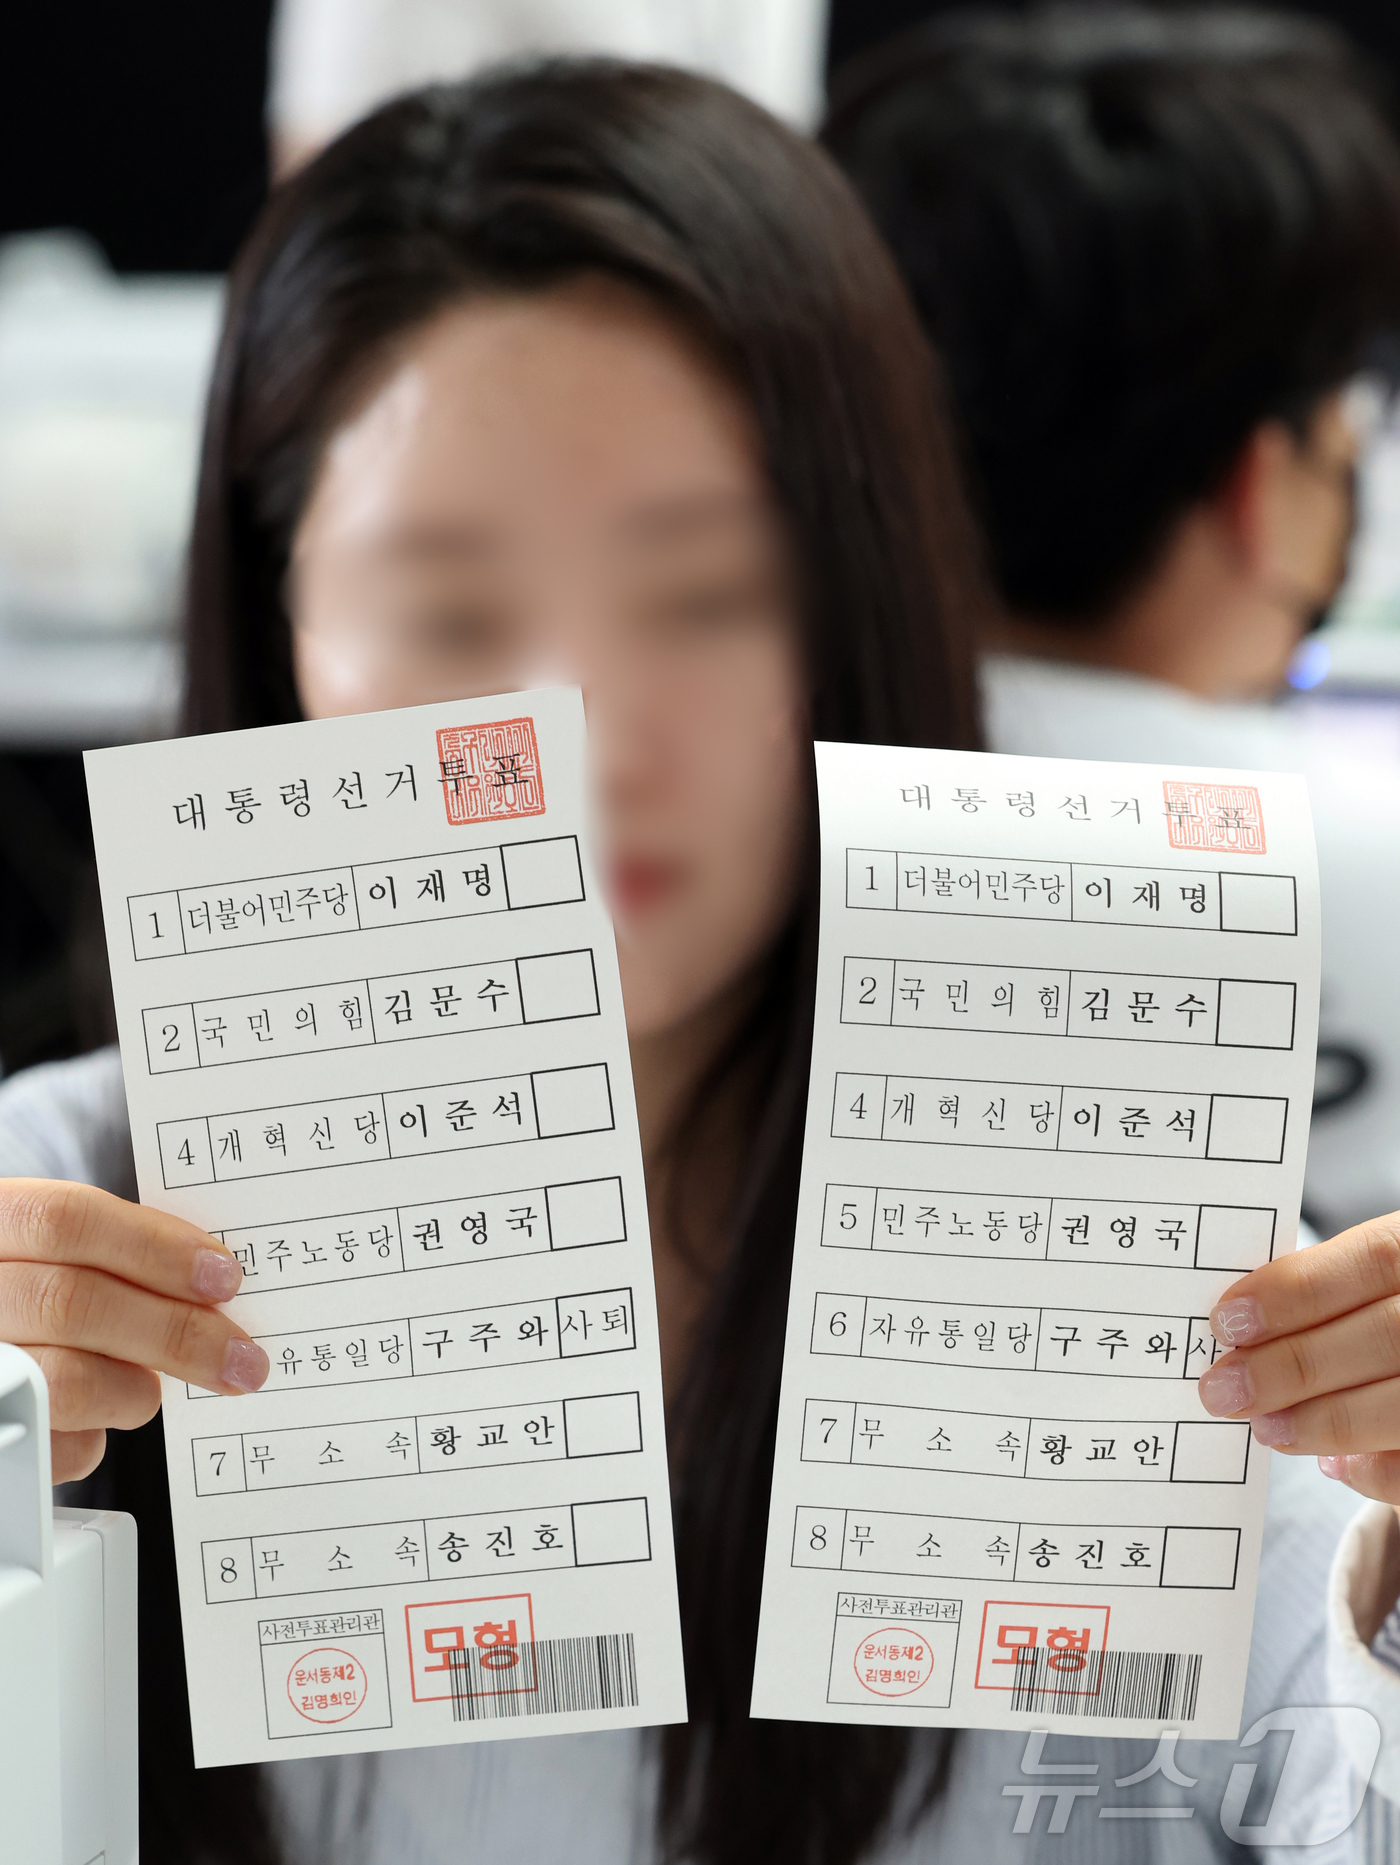 대통령선거투표
1 더불어민주당 이재명
2 국민의힘 김문수
4 개혁신당 이준석
민주노동당 권영국
유통일당 구주와 사퇴
7 무소속 황교안
8 무소속 송진호
사전투표관리관
운서동제2
김명희인
모형
대통령선거투표
1 더불어민주당 이재명
2 국민의힘 김문수
4 개혁신당 이준석
5 민주노동당 권영국
6 자유통일당 구주와 사
7 무소속 황교안
8 무소속 송진호
사전투표관리관
운서동제2
김명희인
모형
뉴스1